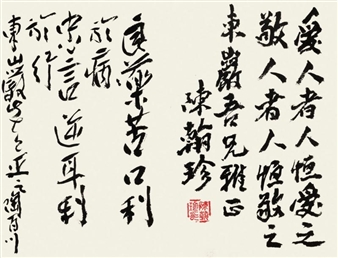 愛人者人恒愛之
敬人者人恒敬之
東巖吾兄雅正
陳翰珍
良藥苦口利
於病
忠言逆耳利
於行
東山巖先生正之陶百川